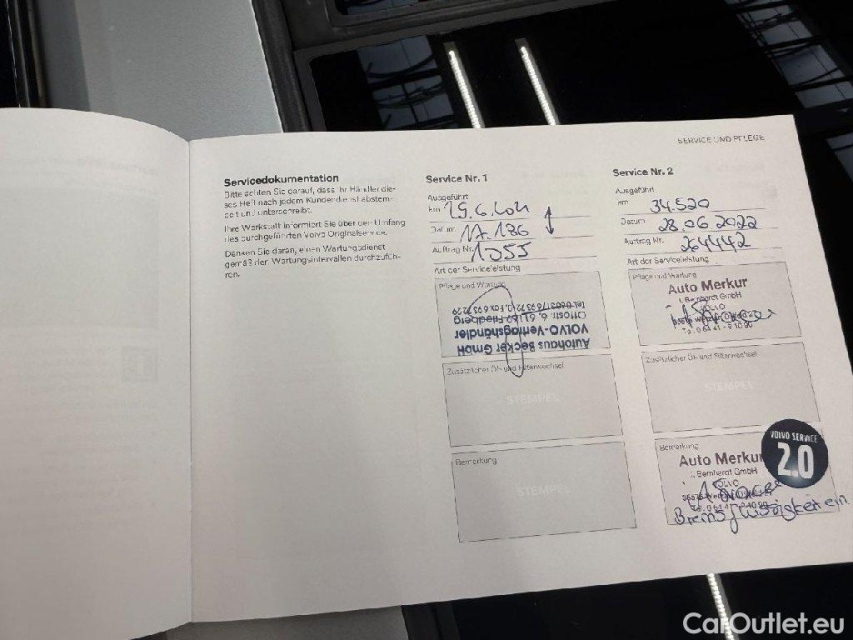 SERVICE UND PFLEGE
Servicedokumentation
Bitte achten Sie darauf, dass Ihr Händler die-
ses Heft nach jedem Kundendienst abstem-
pelt und unterschreibt.
Ihre Werkstatt informiert Sie über den Umfang
des durchgeführten Volvo Originalservice.
Denken Sie daran, einen Wartungsdienst
gemäß den Wartungsintervallen durchzufüh-
ren.
Service Nr. 1
Ausgeführt
km 15.6.2021
Datum 17.186
Auftrag Nr. 1355
Art der Serviceleistung
Pflege und Wartung
Autohaus Becker GmbH
VOLVO-Vertragshändler
Friedberg
Zusätzlicher Öl- und Filterwechsel
STEMPEL
Bemerkung
STEMPEL
Service Nr. 2
Ausgeführt
km 34.520
Datum 28.06.2022
Auftrag Nr. 264442
Art der Serviceleistung
Pflege und Wartung
Auto Merkur
GmbH
Zusätzlicher Öl- und Filterwechsel
STEMPEL
Bemerkung
Auto Merkur
GmbH
Bremsflüssigkeit
VOLVO SERVICE
2.0
CarOutlet.eu